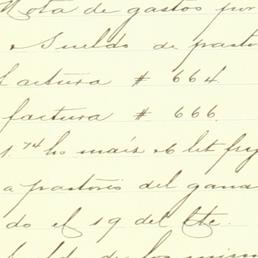 Nota de gastos por
" Sueldo de pasto
factura # 664
factura # 666.
1 74 ho maís 26 let frij
a pastores del gana
do el 19 del Cte.